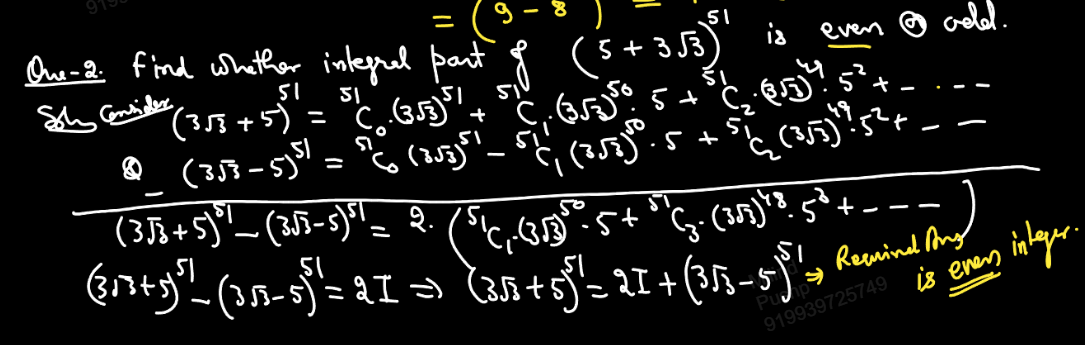 = (9 - 8
Que-2. Find whether integral part of (5 + 3√3)^51 is even or odd.
Soln Consider (3√3 + 5)^51 = ^51C_0 · (3√3)^51 + ^51C_1 · (3√3)^50 · 5 + ^51C_2 · (3√3)^49 · 5^2 + - - - -
& (3√3 - 5)^51 = ^51C_0 (3√3)^51 - ^51C_1 (3√3)^50 · 5 + ^51C_2 (3√3)^49 · 5^2 + - -
(3√3 + 5)^51 - (3√3 - 5)^51 = 2 · (^51C_1 · (3√3)^50 · 5 + ^51C_3 · (3√3)^48 · 5^3 + - - - )
(3√3 + 5)^51 - (3√3 - 5)^51 = 2I ⇒ (3√3 + 5)^51 = 2I + (3√3 - 5)^51 ⇒ Required Ans is even integer.
919939725749